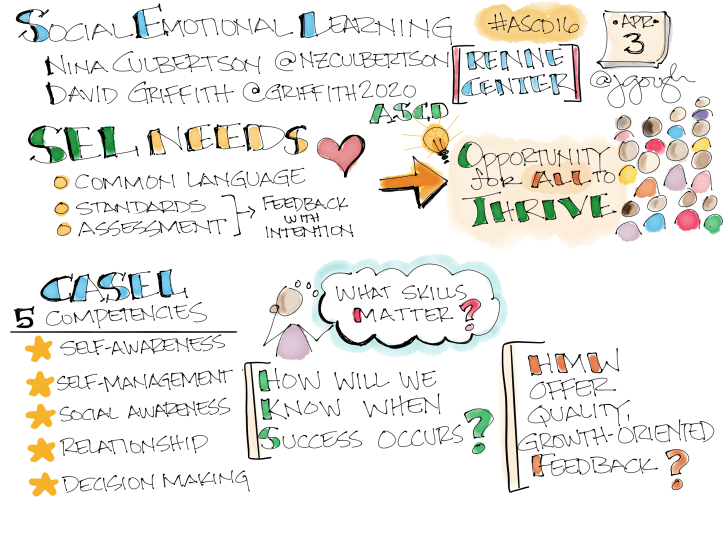 SOCIAL EMOTIONAL LEARNING
#ASCD16
APR
3
NINA CULBERTSON @NZCULBERTSON
DAVID GRIFFITH @GRIFFITH2020
RENNE
CENTER
@jgough
ASCD
SEL NEEDS
COMMON LANGUAGE
STANDARDS
ASSESSMENT
FEEDBACK
WITH
INTENTION
OPPORTUNITY
FOR ALL TO
THRIVE
CASEL
5 COMPETENCIES
SELF-AWARENESS
SELF-MANAGEMENT
SOCIAL AWARENESS
RELATIONSHIP
DECISION MAKING
WHAT SKILLS
MATTER?
HOW WILL WE
KNOW WHEN
SUCCESS OCCURS?
HMW
OFFER
QUALITY,
GROWTH-ORIENTED
FEEDBACK?